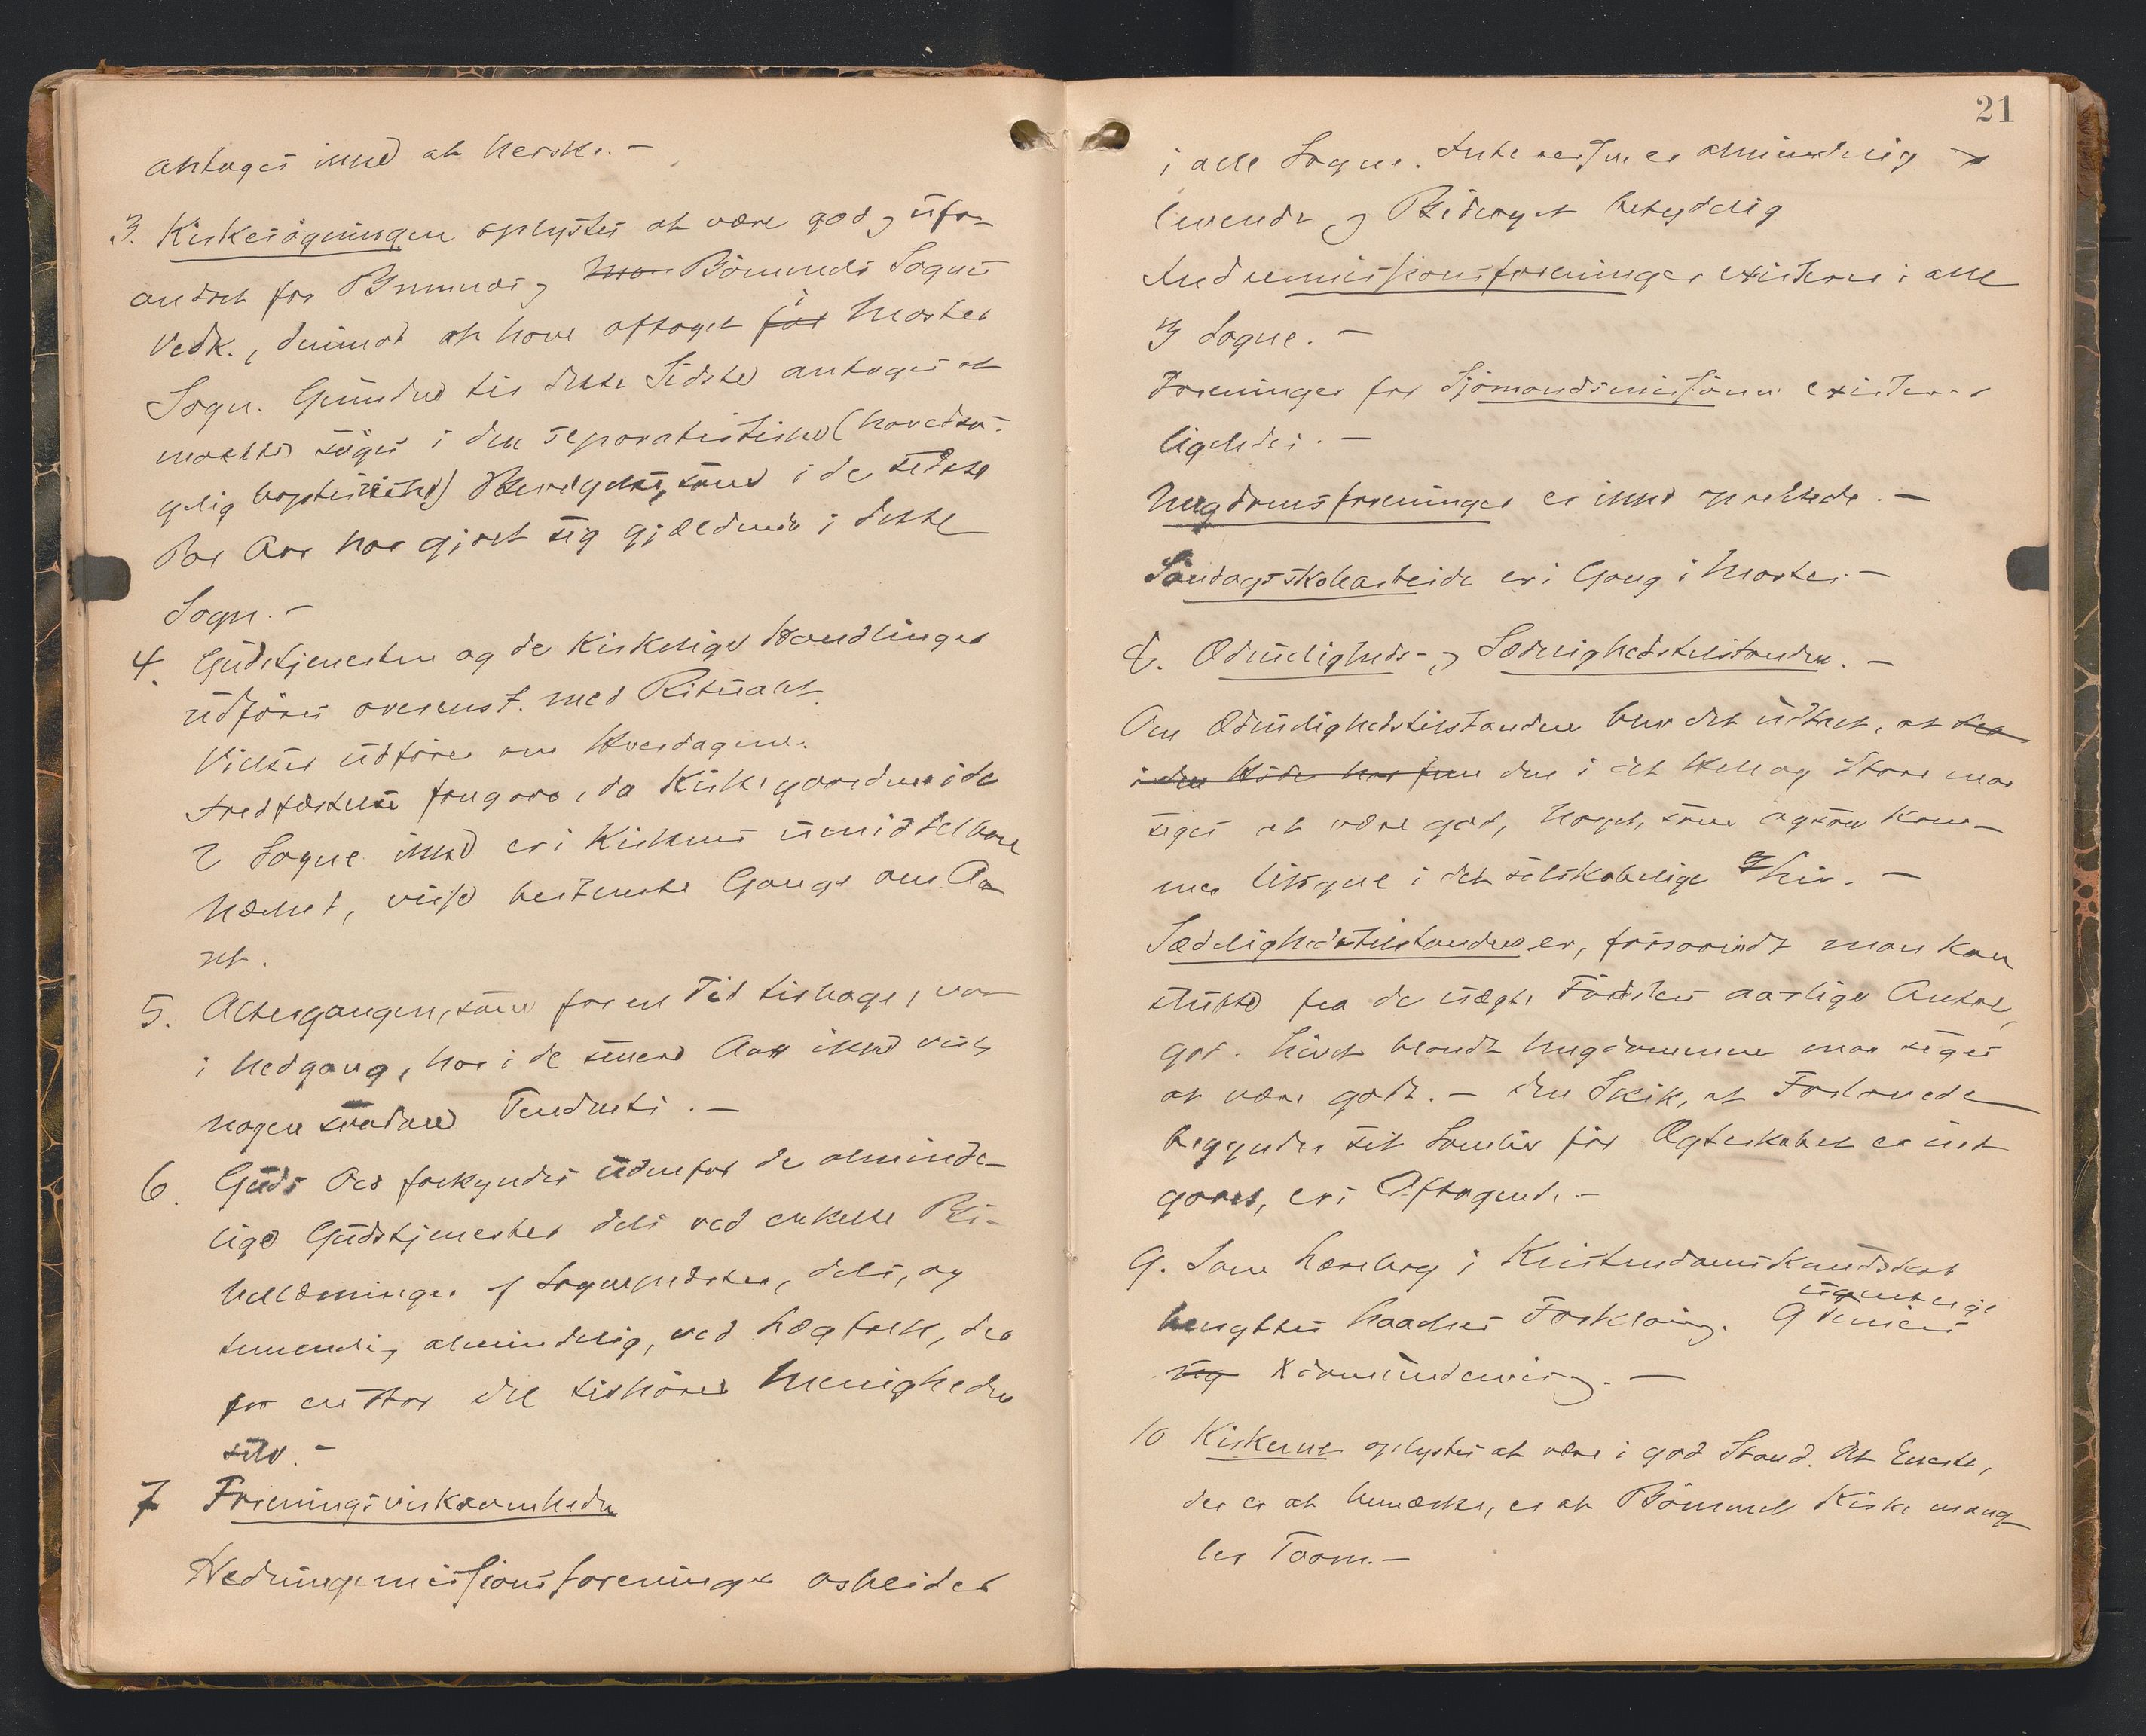 antages ikke at herske. –
3. Kirkesøgningen oplystes at være god og ufor-
andret for Bremnes og Bømmels Sogns
Vedk., derimod at have aftaget i Moster
Sogn. Grunden til dette Sidste antages at
maatte søges i den separatistiske (hovedsa-
gelig baptistiske) Bevægelse, som i de sidste
Par Aar har gjort sig gjældende i dette
Sogn. –
4. Gudstjenesten og de kirkelige Handlinger
udføres overenst. med Ritualet.
Vielser udføres om Hverdagene.
Jordfæstelse foregaar, da Kirkegaardene i de
2 Sogne ikke er i Kirkens umiddelbare
Nærhed, visse bestemte Gange om Aa-
ret.
5. Altergangen, som for en Tid tilbage, var
i Nedgang, har i de senere Aar ikke vist
nogen saadan Tendents. –
6. Guds Ord forkyndes udenfor de alminde-
lige Gudstjenester dels ved enkelte Bi-
bellæsninger af Sognepresten, dels, og
temmelig almindelig, ved Lægfolk, der
for en stor Del tilhører Menigheden
selv. –
7 Foreningsvirksomheden
Hedningemissionsforeninger arbeider
21
i alle Sogne. Interessen er almindelig
levende og Bidraget betydelig
Indremissionsforeninger existerer i alle
3 Sogne. –
Foreninger for Sjømandsmissionen existerer
ligeledes. –
Ungdomsforeninger er ikke oprettede. –
Søndagsskolearbeide er i Gang i Moster. –
8. Ædrueligheds- og Sædelighedstilstanden. –
Om Ædruelighedstilstanden blev det udtalt, at
den i det Hele og Store maa
siges at være god, noget, som ogsaa kom-
mer tilsyne i det selskabelige Liv. –
Sædelighedstilstanden er, forsaavidt man kan
slutte fra de uægte Fødslers aarlige Antal,
god. Livet blandt Ungdommen maa siges
at være godt. – Den Skik, at Forlovede
begynder sit Samliv før Ægteskabet er ind-
gaaet, er i Aftagende. –
9. Som Lærebog i Kristendomskundskab
benyttes Klaadnes Forklaring. 9
10 Kirkerne oplystes at være i god Stand. Det Eneste,
der er at bemærke, er at Bømmel Kirke mang-
ler Taarn. –